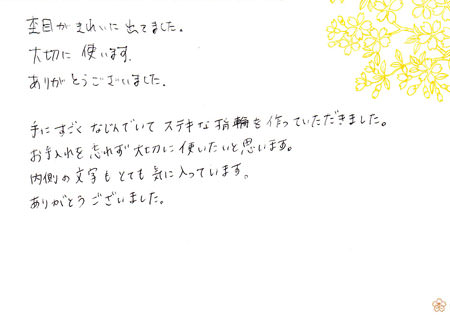 杢目がきれいに出てました。
大切に使います。
ありがとうございました。
手にすごくなじんでいてステキな指輪を作っていただきました。
お手入れを忘れず大切に使いたいと思います。
内側の文字もとても気に入っています。
ありがとうございました。